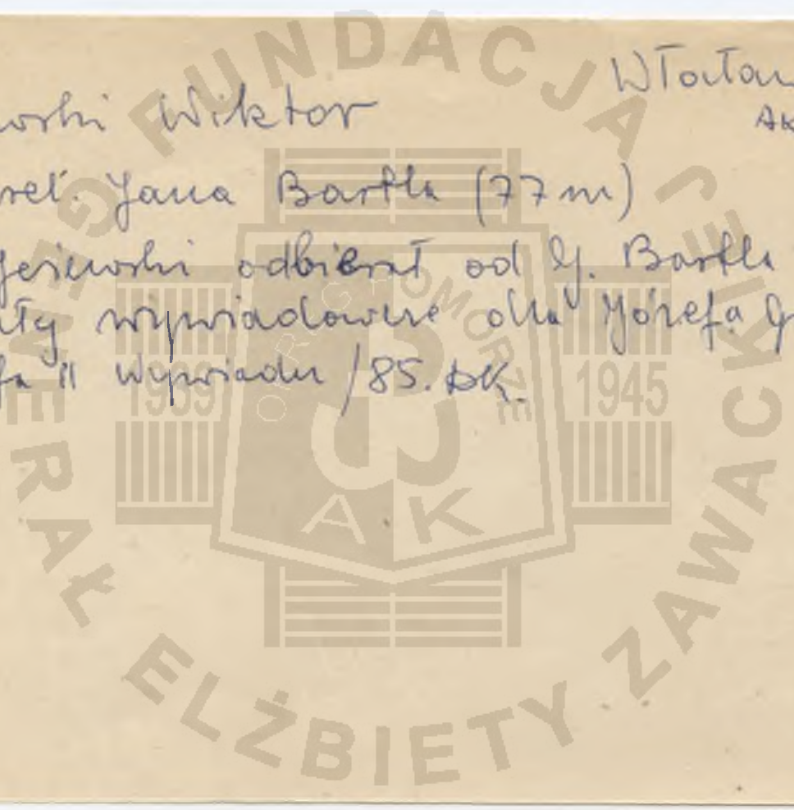 Włocław
AK
wski Wiktor
rel. Jana Bartla (77 m)
geriewski odbierał od J. Bartla
ały wywiadowcze dla Józefa G
fa II Wywiadu /85. AK.
FUNDACJA
GENERAŁ ELŻBIETY ZAWACKIEJ
ORG POMORZE
1939 1945
AK